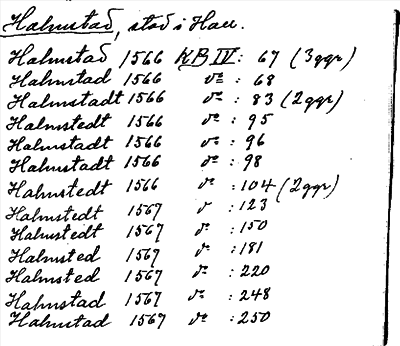 Halmstad, stad i Hall.
Halmstad 1566 KB IV: 67 (3ggr)
Halmstad 1566 d:o : 68
Halmstadt 1566 d:o : 83 (2ggr)
Halmstedt 1566 d:o : 95
Halmstadt 1566 d:o : 96
Halmstadt 1566 d:o : 98
Halmstedt 1566 d:o : 104 (2ggr)
Halmstedt 1567 d:o : 123
Halmstedt 1567 d:o : 150
Halmsted 1567 d:o : 181
Halmsted 1567 d:o : 220
Halmstad 1567 d:o : 248
Halmstad 1567 d:o : 250